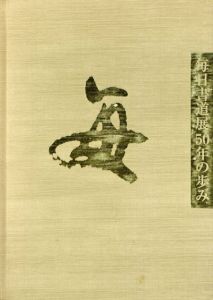 毎日書道展50年の歩み
毎